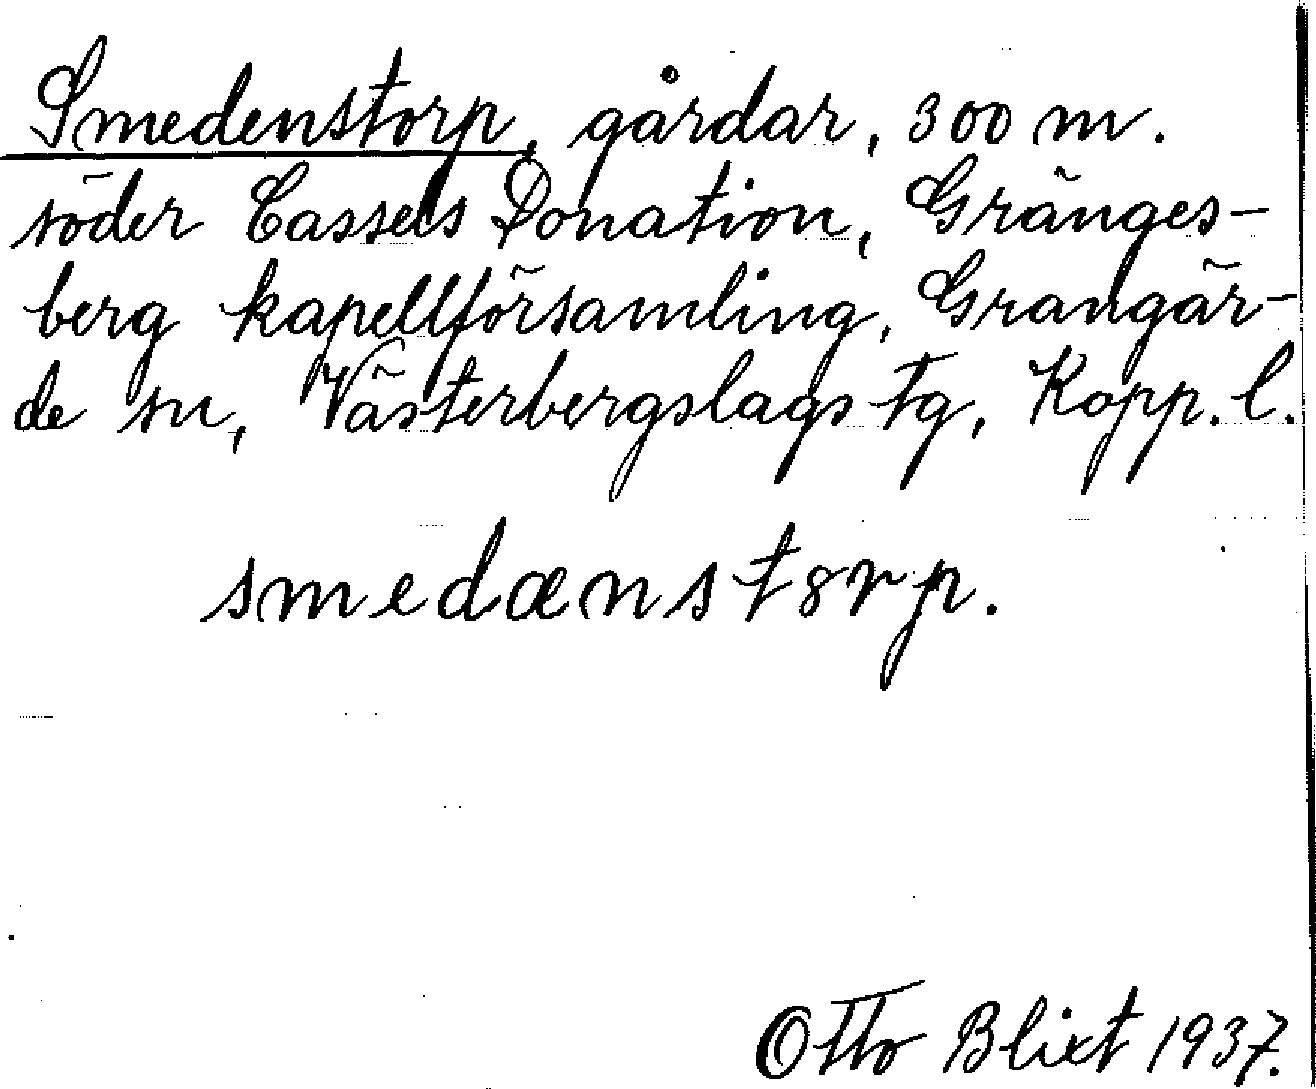 Smedenstorp, gårdar, 300 m.
söder Cassels Donation, Gränges-
berg kapellförsamling, Grangär-
de sn, Västerbergslags tg, Kopp. l.
smedænst8rp.
Otto Blixt 1937.